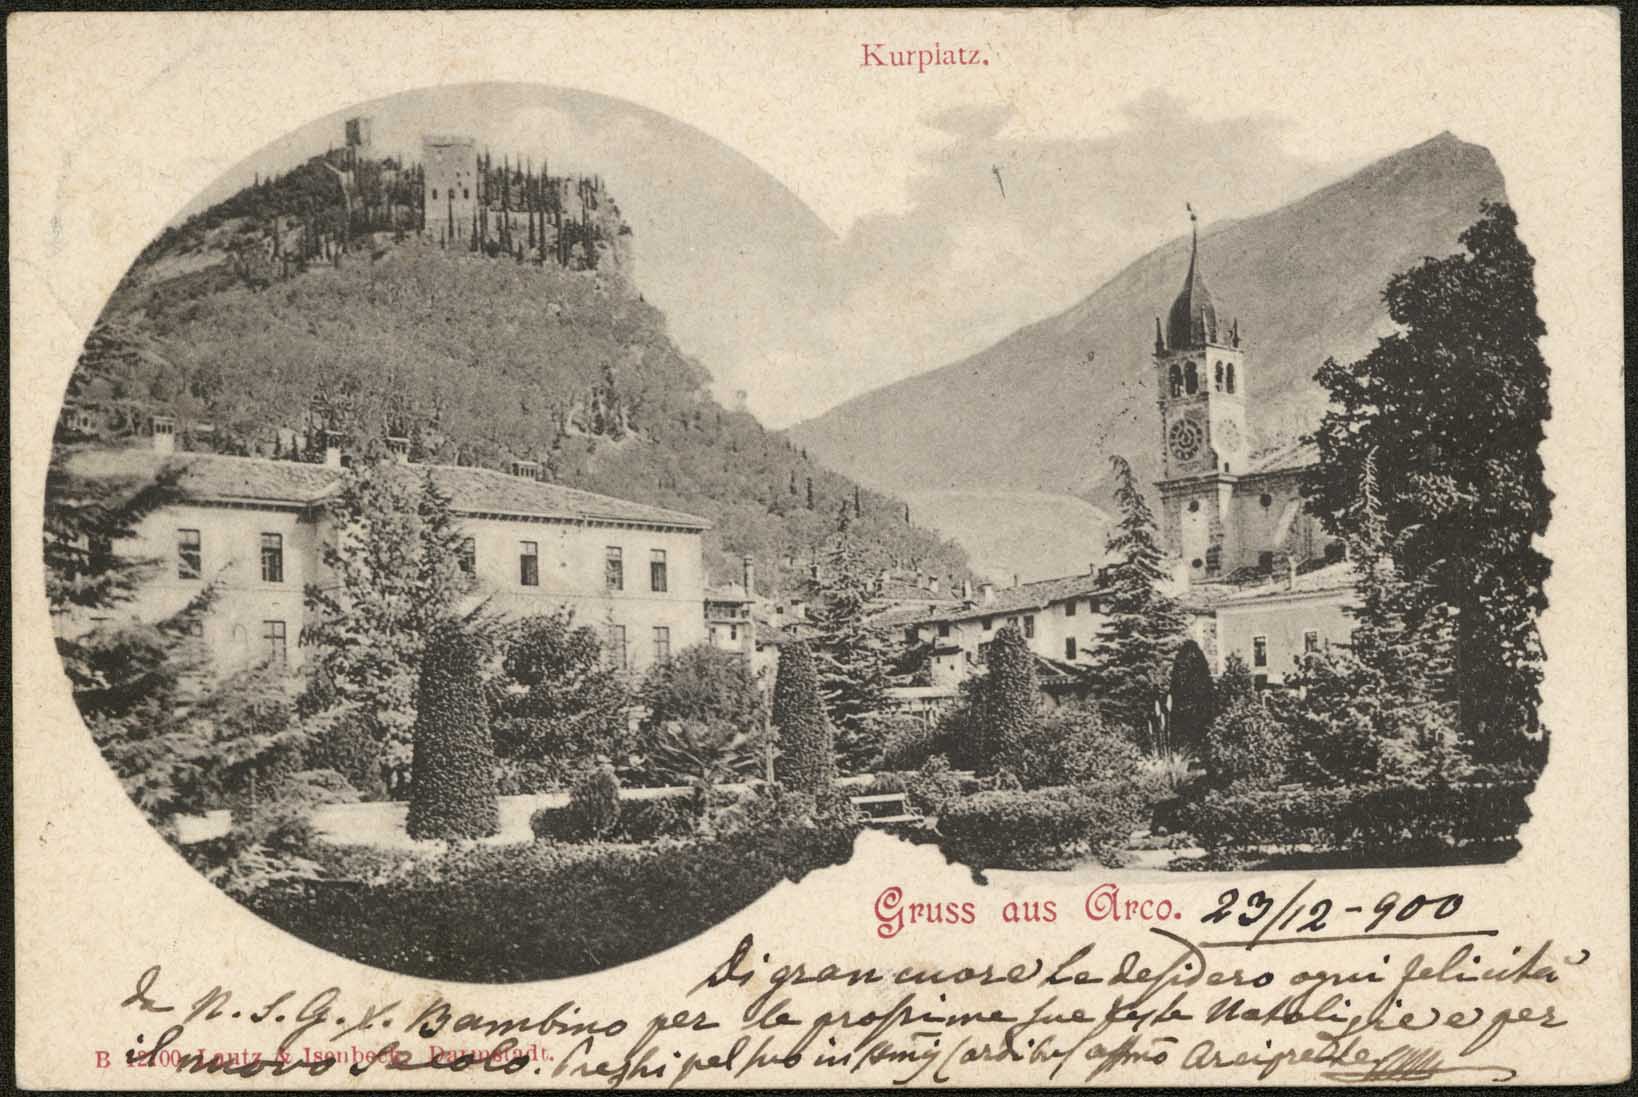 Kurplatz.
Gruss aus Arco. 23/12-900
Di gran cuore Le desidero ogni felicità
da N. S. G. X. Bambino per le prossime sue feste Natalizie e per
il nuovo Secolo. Preghi pel suo in Arciprete
B 12100 Lautz & Isenbeck, Darmstadt.